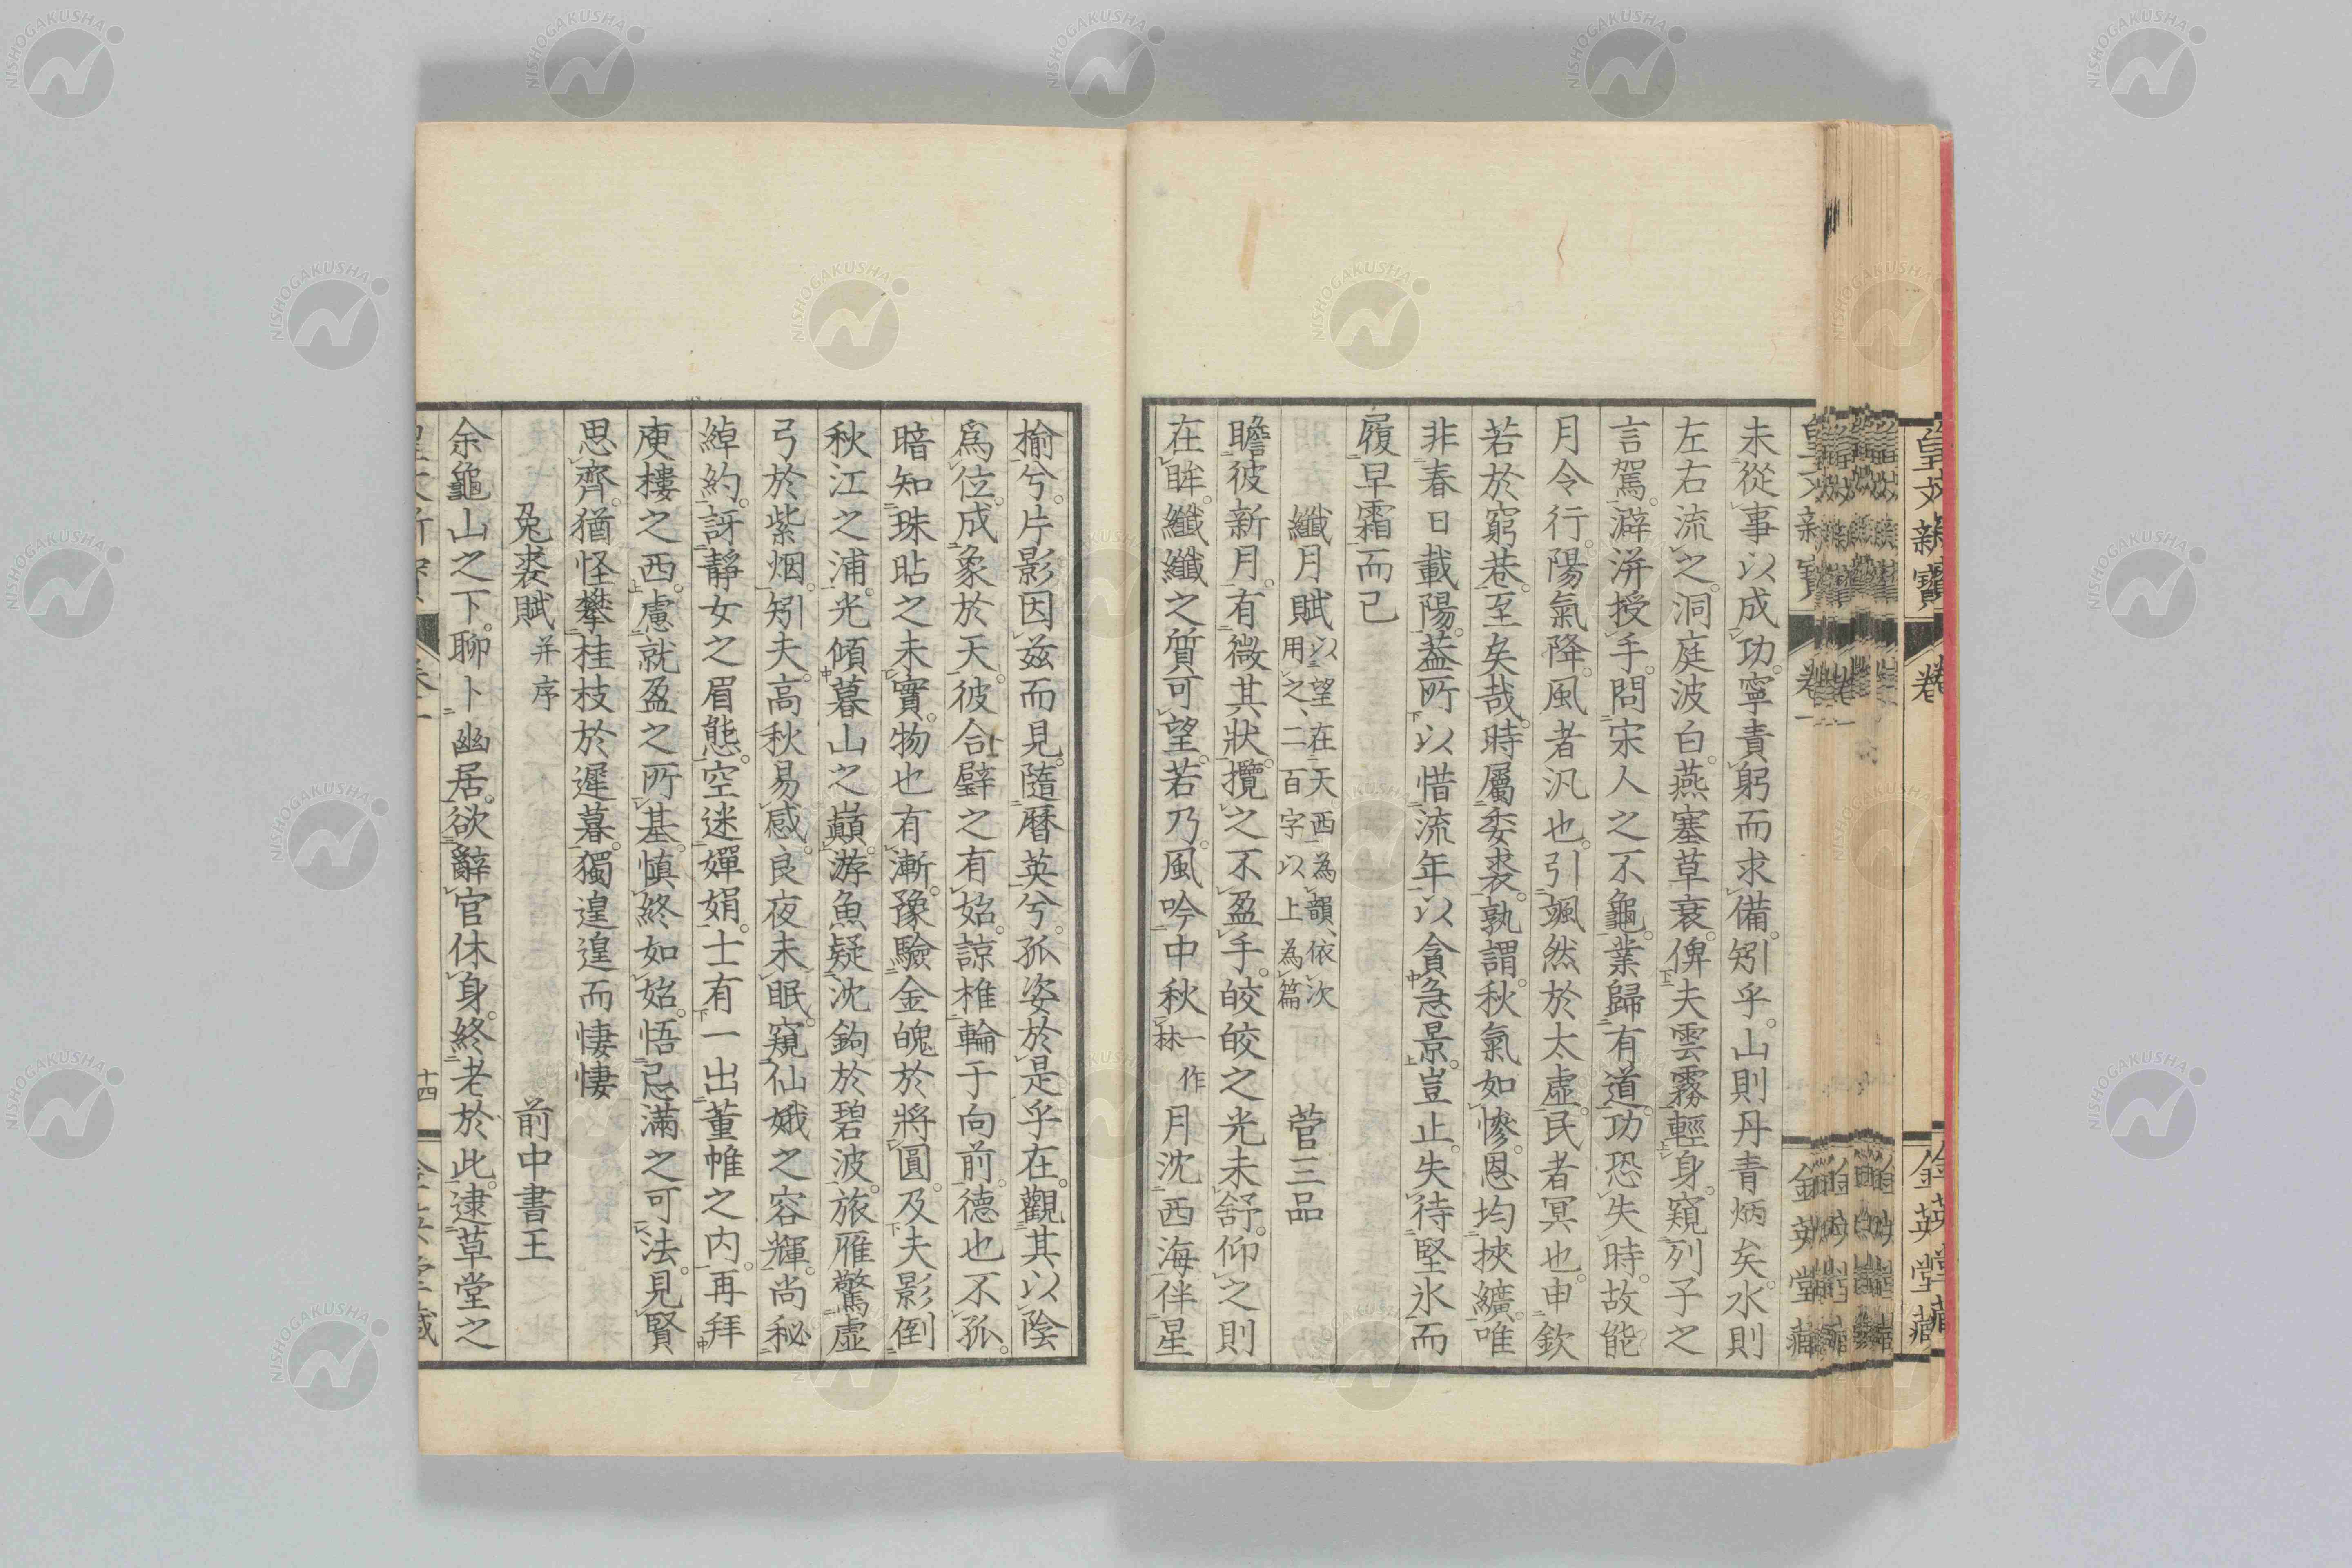 未從事以成功。寧責躬而求備。矧乎。山則丹青炳矣。水則
左右流之。洞庭波白。燕塞草衰。俾夫雲霧輕身。窺列子之
言駕。澼洴授手。問宋人之不龜。業歸有道。功恐失時。故能
月令行。陽氣降。風者汎也。引颯然於太虛。民者冥也。申欽
若於窮巷。至矣哉。時屬委裘。孰謂秋氣如慘。恩均挾纊。唯
非春日載陽。蓋所以惜流年。以貪急景。豈止。失待堅氷而
履早霜而已
纖月賦 以望在天西為韻、依次用之、二百字以上為篇 菅三品
瞻彼新月。有微其狀。攬之不盈手。皎皎之光未舒。仰之則
在眸。纖纖之質可望。若乃。風吟中秋一作林月沈西海伴星
楡兮。片影因玆而見。隨暦英兮。孤姿於是乎在。觀其以陰
爲位。成象於天。彼合璧之有始。諒椎輪于向前。德也不孤。
暗知珠胎之未實。物也有漸。豫驗金魄於將圓。及夫影倒
秋江之浦。光傾暮山之巓。游魚疑沈鉤於碧波。旅雁驚虛
弓於紫烟。矧夫。高秋易感。良夜未眠。窺仙娥之容輝。尚秘
綽約。訝靜女之眉態。空迷嬋娟。士有一出董帷之內。再拜
庾樓之西。慮就盈之所基。慎終如始。悟忌滿之可法。見賢
思齊。猶怪攀桂枝於遲暮。獨遑遑而悽悽
兔裘賦 并序 前中書王
余龜山之下。聊卜幽居。欲辭官休身。終老於此。逮草堂之
十四
皇文新寶
卷一
金英堂藏